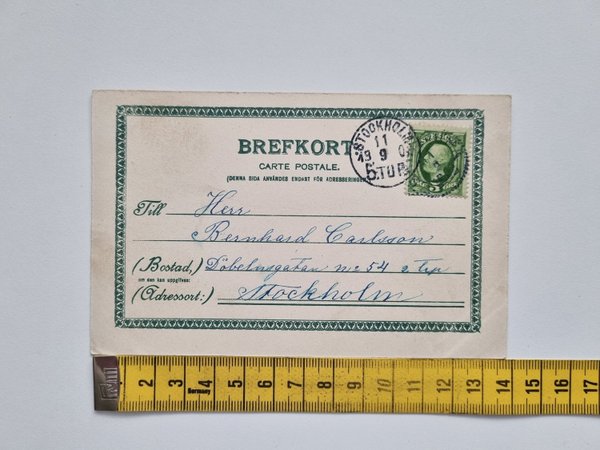 BREFKORT
CARTE POSTALE.
(DENNA SIDA ANVÄNDES ENDAST FÖR ADRESSERINGEN)
STOCKHOLM
11
9
5.TUR.
SVERIGE
5
Till Herr
Bernhard Carlsson
(Bostad, Döbelnsgatan no 54 2 trp
om den kan uppgifvas:
(Adressort:) Stockholm
2 3 4 5 6 7 8 9 10 11 12 13 14 15 16 17
Germany